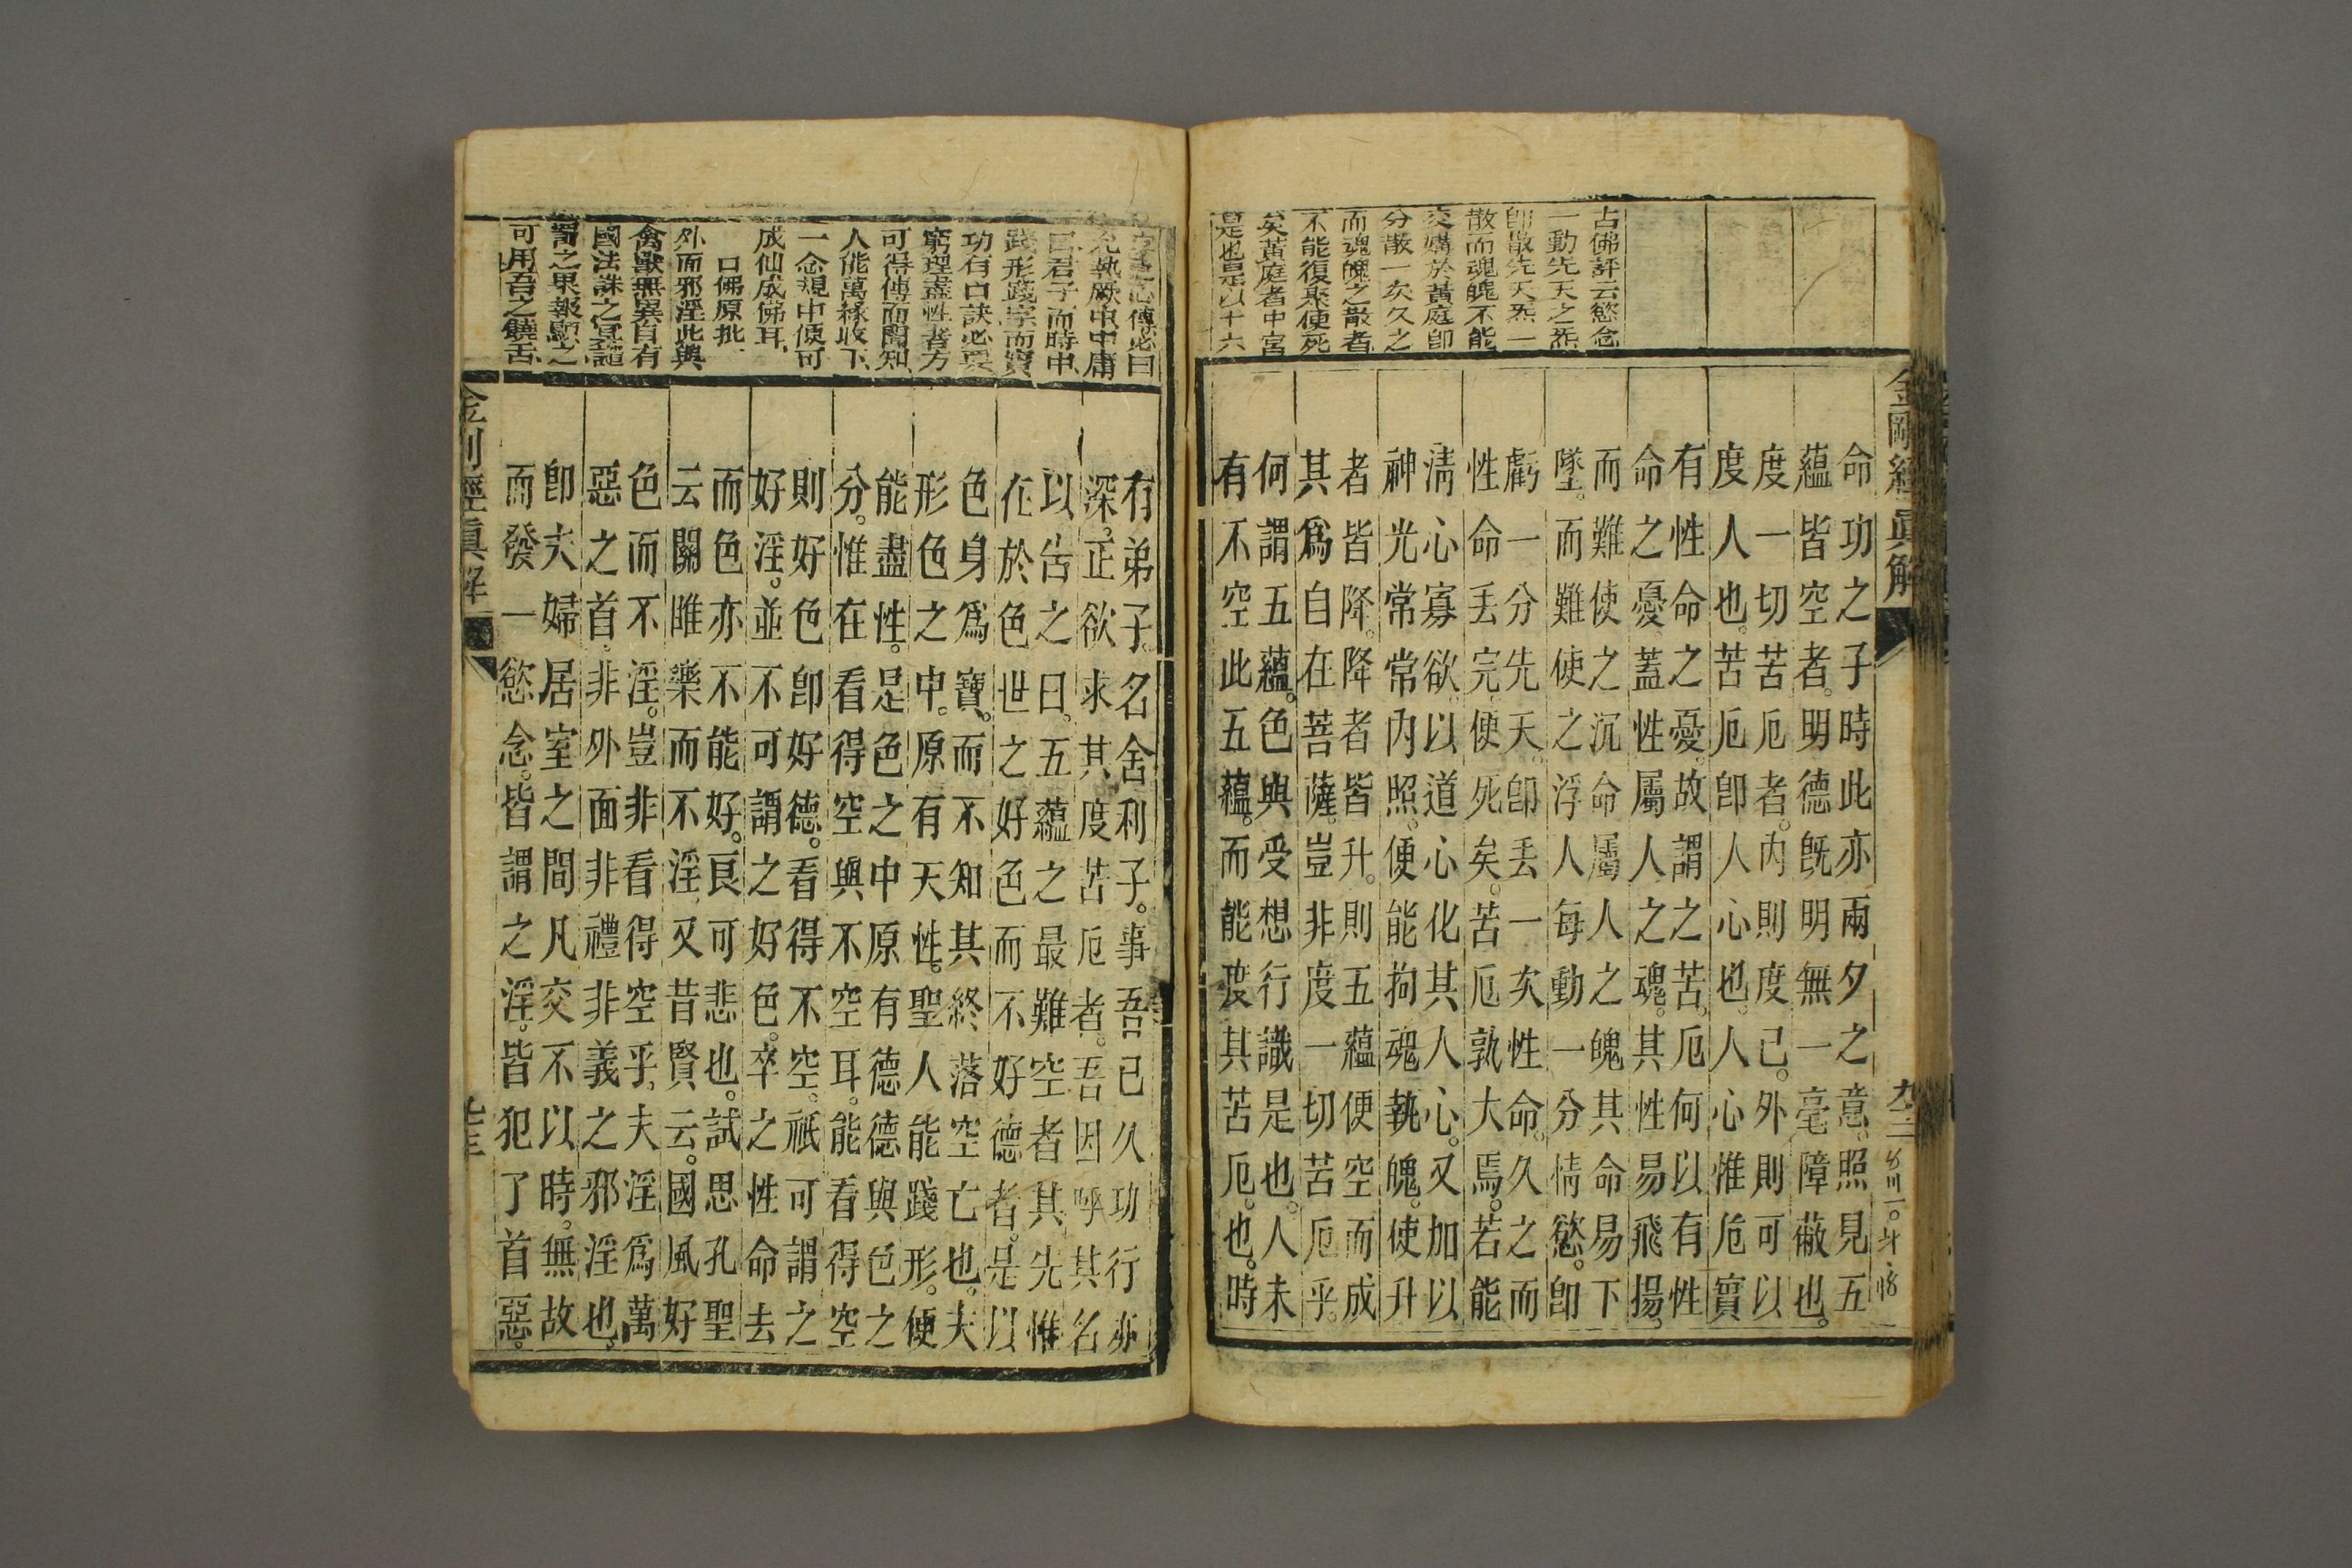 金剛經真解
九三
古佛評云慾念
一動先天之炁
卽散先天炁一
散而魂魄不能
交媾於黃庭卽
分散一次久之
而魂魄之散者
不能復聚便死
矣黃庭者中宮
是也是以十六
命功之子時此亦兩夕之意。照見五
蘊皆空者。明德旣明無一毫障蔽也。
度一切苦厄者。内則度己。外則可以
度人也。苦厄卽人心也。人心惟危實
有性命之憂。故謂之苦。厄何以有性
命之憂蓋性屬人之魂。其性易飛揚。
而難使之沉命屬人之魄其命易下
墜。而難使之浮人每動一分情慾。卽
虧一分先天。卽丢一次性命。久之而
性命丢完便死矣。苦厄孰大焉。若能
淸心寡欲以道心化其人心。又加以
神光常常內照。便能拘魂執魄。使升
者皆降。降者皆升。則五蘊便空而成
其爲自在菩薩。豈非度一切苦厄乎。
何謂五蘊。色與受想行識是也。人未
有不空此五蘊。而能度其苦厄也。時
字之心傳必曰
允執厥中中庸
曰君子而時中
踐形踐字而實
功有口訣必要
窮理盡性者方
可得傳而聞知
人能萬緣收下
一念規中便可
成仙成佛耳
佛原批
外而邪淫此與
禽獸無異自有
國法誅之冥
罰之果報顯之
可用吾之饒舌
有弟子。名舍利子。事吾已久功行亦
深。正欲求其度苦厄者。吾因呼其名
以告之曰。五蘊之最難空者其先惟
在於色世之好色而不好德者。是以
色身爲寶。而不知其終落空亡也。夫
形色之中。原有天性。聖人能踐形。便
能盡性。是色之中原有德德與色之
分。惟在看得空與不空耳。能看得空
則好色卽好德。看得不空。祇可謂之
好淫。並不可謂之好色。卒之性命去
而色亦不能好。良可悲也。試思孔聖
云關雎樂而不淫又昔賢云。國風好
色而不淫。豈非看得空乎。夫淫爲萬
惡之首。非外面非禮非義之邪淫也。
卽夫婦居室之間凡交不以時。無故
而發一慾念。皆謂之淫。皆犯了首惡。
金剛經真解